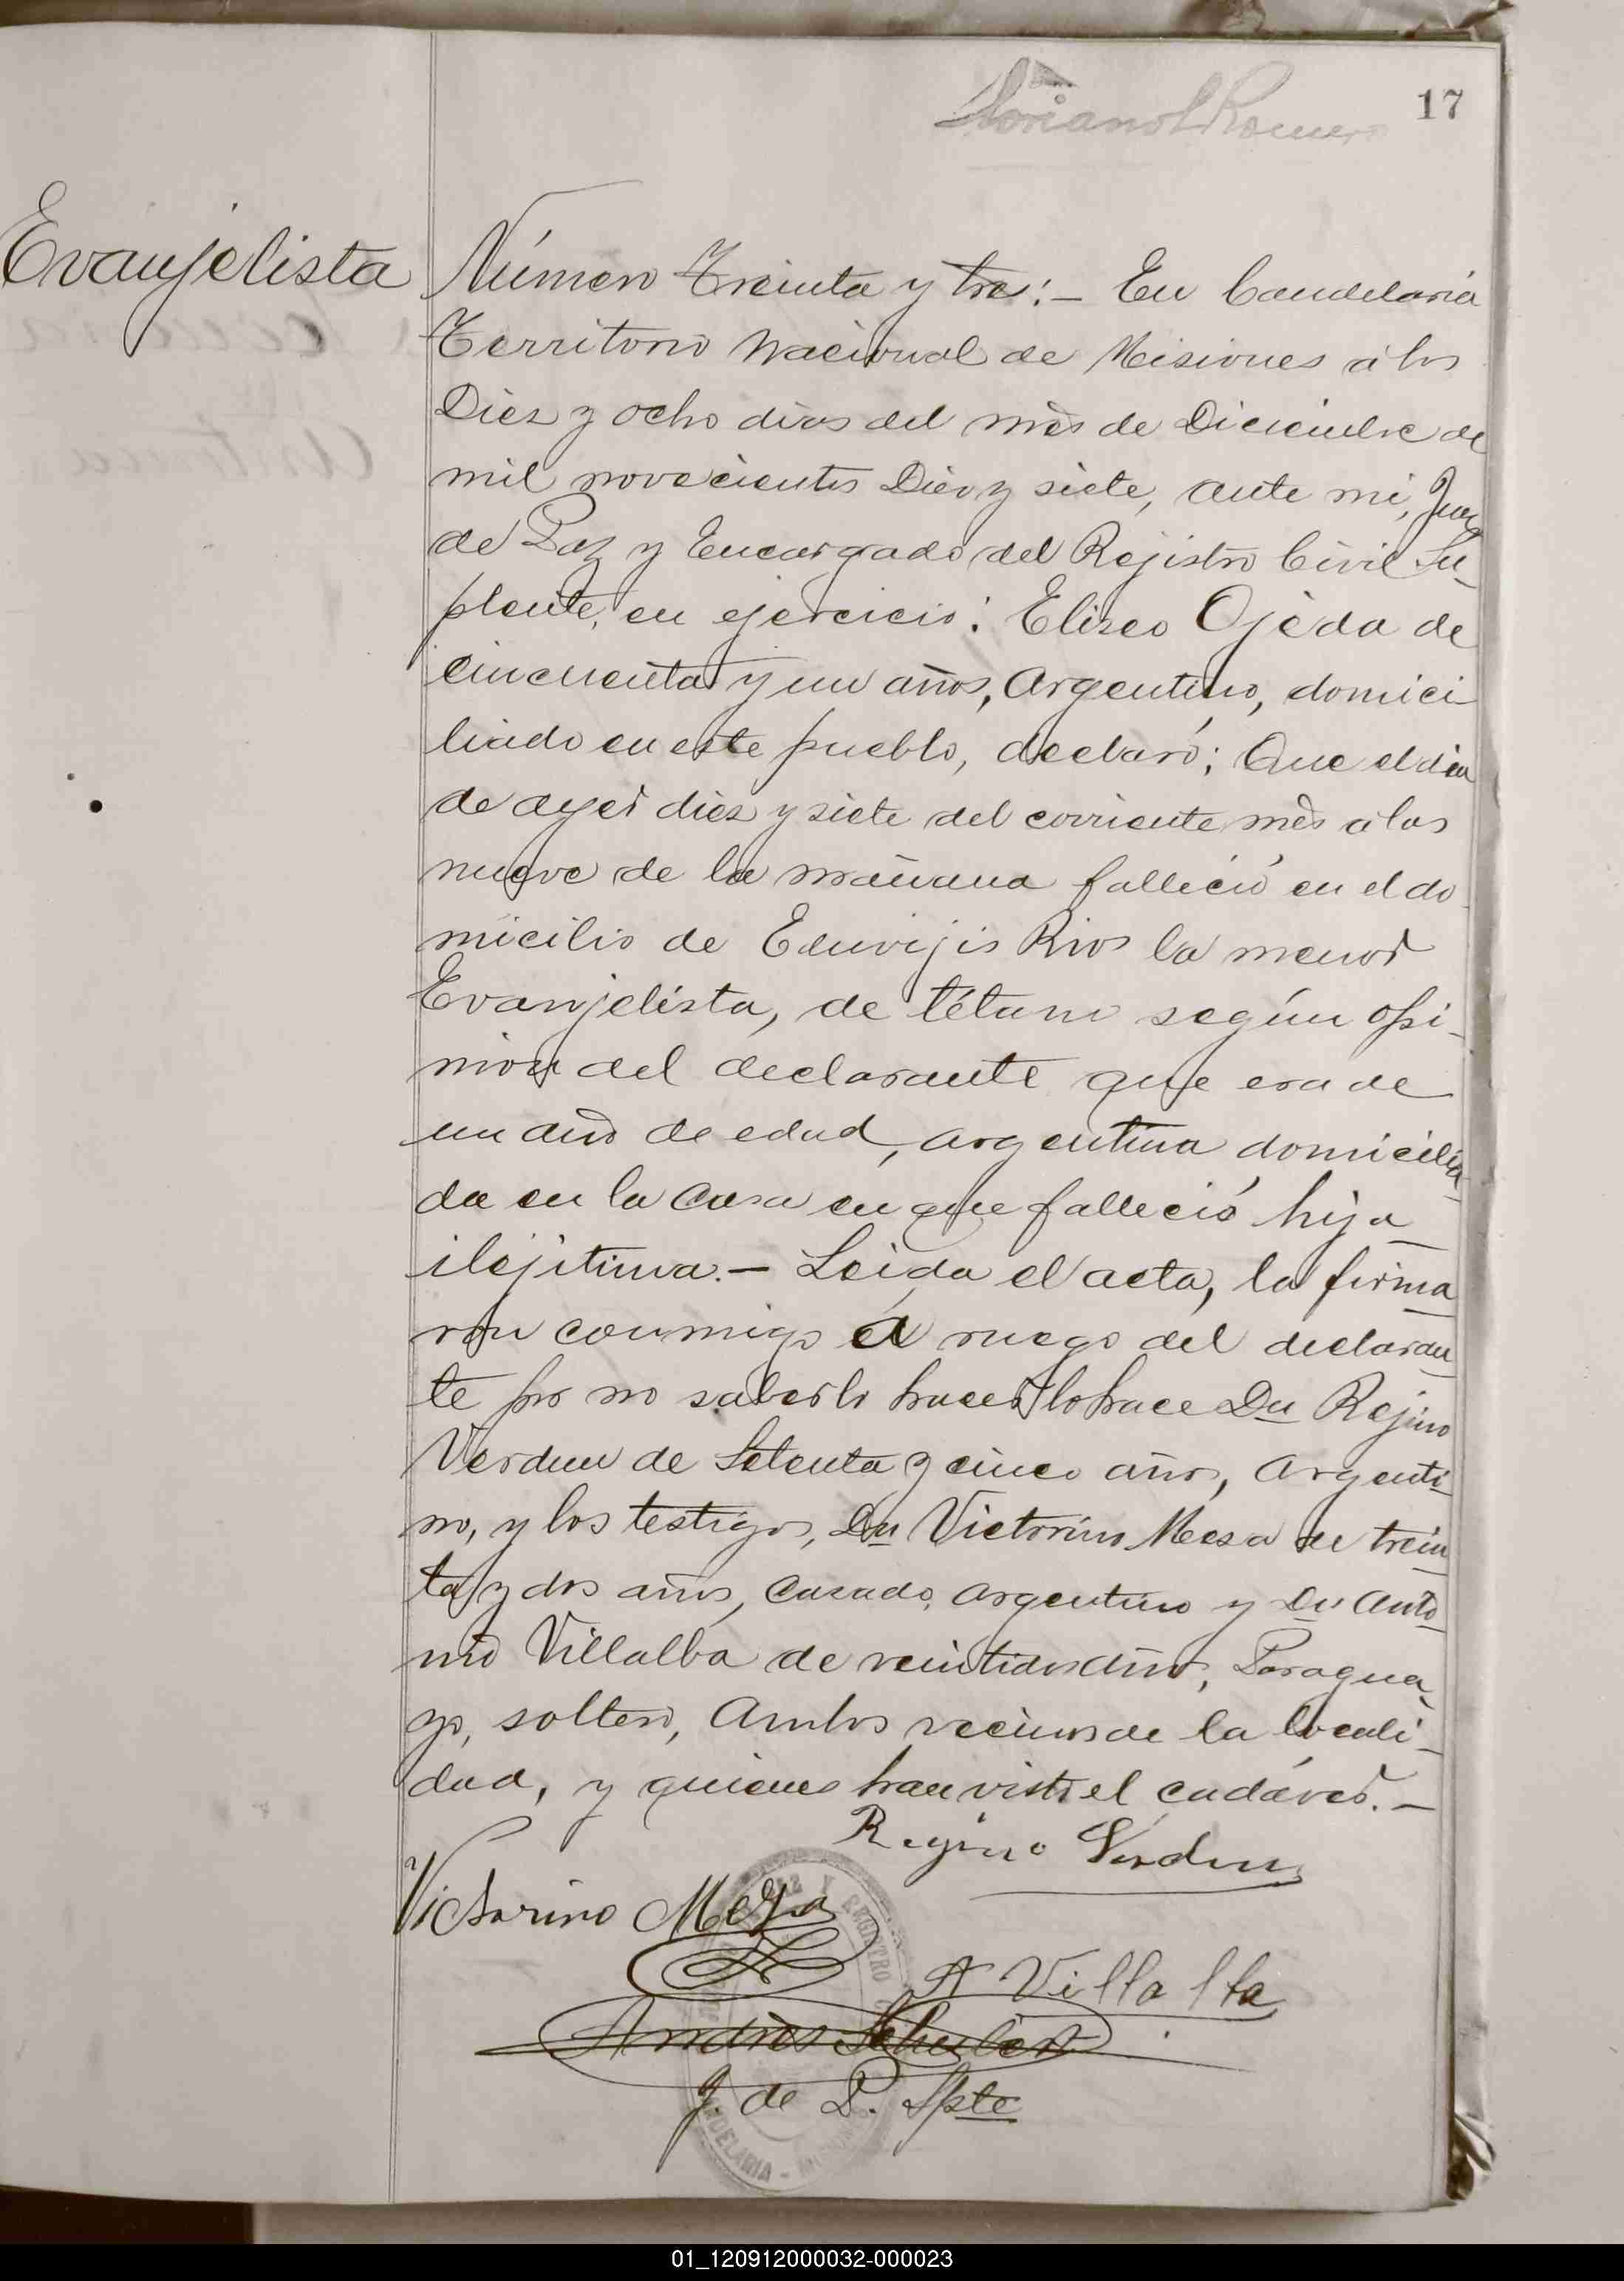 17
Evanjelista
Número Treinta y tres:- En Candelaria
Territorio Nacional de Misiones á los
Diez y ocho dias del mès de Diciembre de
mil novecientos Diez y siete, ante mi, Juez
de Paz y Encargado del Rejistro Civil Su-
plente, en ejercicio: Eliseo Ojeda de
cincuenta y un años, Argentino, domici-
liado en este pueblo, declaró; Que el dia
de ayer diez y siete del corriente mès a las
nueve de la mañana falleció en el do-
micilio de Eduvijis Rios la menor
Evanjelista, de tétano según opi-
nion del declarante que era de
un año de edad, argentina domicilia-
da en la casa en que falleció hija
ilejitima.- Leida el acta, la firma
ron conmigo á ruego del declaran
te por no saberlo hacer lo hace Dn Rejino
Verdun de Setenta y cinco años, argenti-
no, y los testigos, Dn Victorino Mesa de trein
ta y dos años, casado, argentino y Dn Anto
nio Villalba de veintidos años, Paragua-
yo, soltero, Ambos vecinos de la locali-
dad, y quienes han visto el cadáver.-
Regino Verdun
Victorino Meza
A Villalba
Andrés
J. de P. Spte
CANDELARIA - MISIONES
01_120912000032-000023